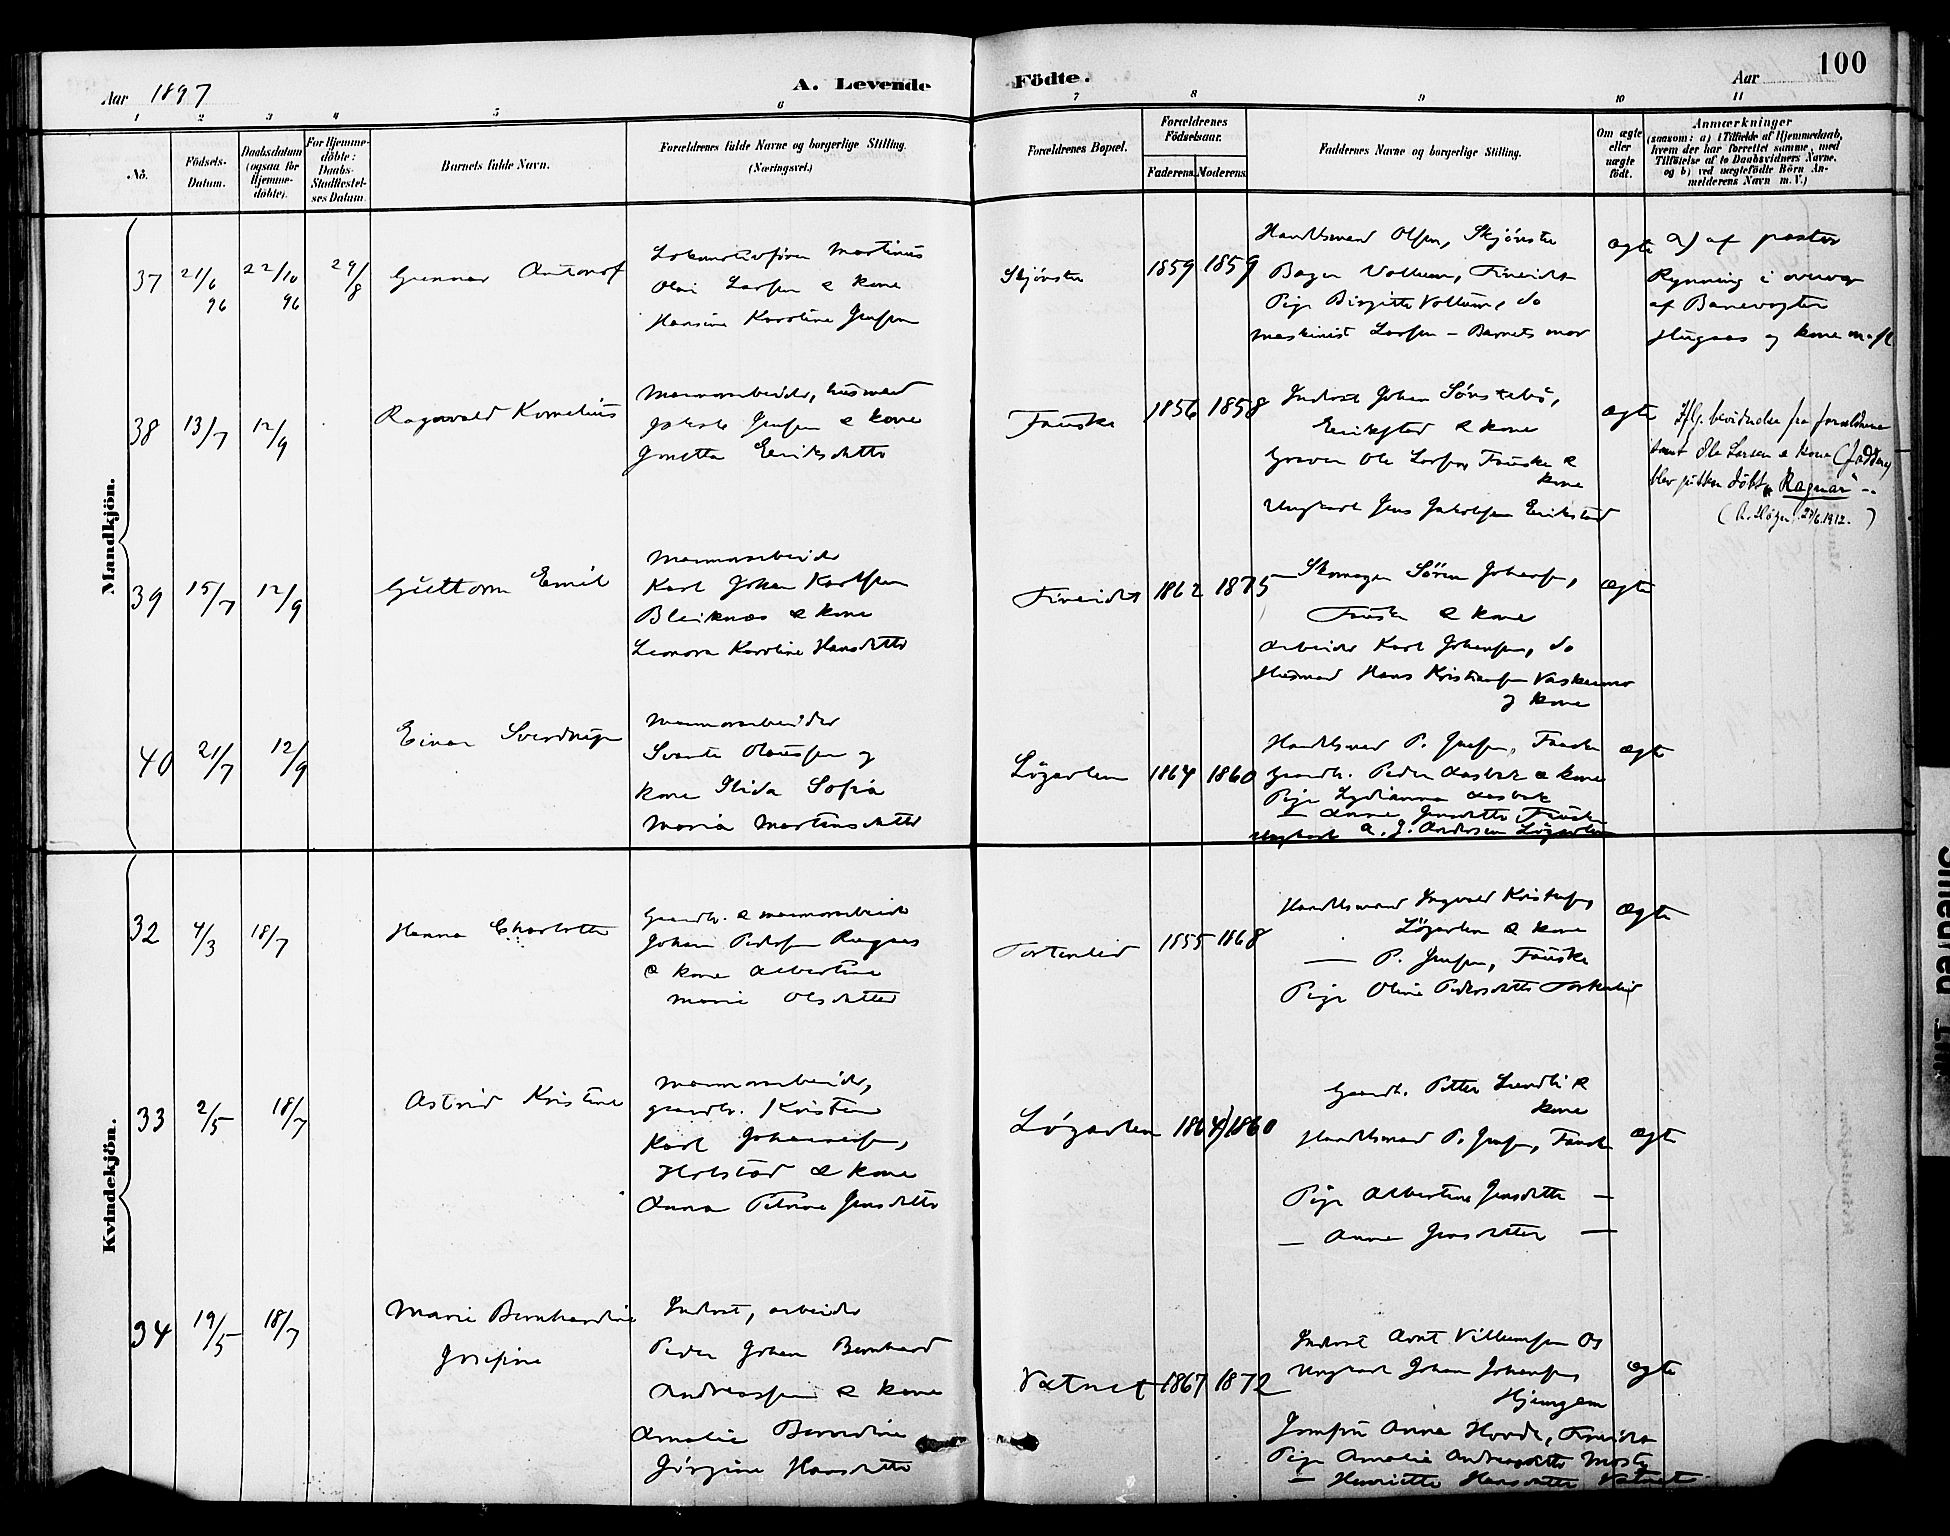 100
Aar 1897
A. Levende Födte.
Aar
1 2 3 4 5 6 7 8 9 10 11
No.
Födsels-
Datum.
Daabsdatum
(ogsaa för
Hjemme-
döbte).
For Hjemme-
döbte:
Daabs-
Stadfæstel-
ses Datum.
Barnets fulde Navn.
Forældrenes fulde Navne og borgerlige Stilling.
(Næringsvei.)
Forældrenes Bopæl.
Forældrenes
Födselsaar.
Faderens.
Moderens.
Faddernes Navne og borgerlige Stilling.
Om ægte
eller
uægte
födt.
Anmærkninger
(saasom: a) i Tilfælde af Hjemmedaab,
hvem der har forrettet samme, med
Tilföielse af to Daabsvidners Navne.
og b) ved uægtefödte Börn An-
melderens Navn m. V.)
Mandkjön.
37
21/6
96
22/10
96
29/8
Gunnar
Martinus
Olai Larsen & kone
Hansine Karoline Jensen
Skjönstu
1859
1859
Handelsmand Olsen, Skjönstu
Vollum, Fineidet
Pige Birgitte Vollum, do
Maskinist Larsen - Barnets mor
ægte
a) af pastor
Rynning i overvær
af Banevogter
og kone m. fl.
38
13/7
12/9
Ragnvald Kornelius
Marmorarbeider, husmand
Jakob Jensen & kone
Eriksdatter
Fauske
1856
1858
Inderst Johan
Erikstad & kone
Ole Larsen Fauske &
kone
Ungkarl Jens Jakobsen Erikstad
ægte
Iflg. fra forældrene
samt Ole Larsen & kone
blev gutten döbt "Ragnar" -
27/6 1912. )
39
15/7
12/9
Guttorm Emil
Marmorarbeider
Karl Johan Karlsen
Bleiknes & kone
Leonora Karoline Hansdatter
Fineidet
1862
1875
Skomager Sören Johansen,
Fauske & kone
Arbeider Karl Johansen, do
Husmand Hans Kristiansen Vaskermo
og kone
ægte
40
21/7
12/9
Einar Sverdrup
Marmorarbeider
Svante Olaussen og
kone Ilida Sofia
Maria Martinsdatter
Lögavlen
1864
1860
Handelsmand P. Jensen, Fauske
Gaardbr. Peder Aasbak & kone
Pige Lydianna Aasbak
— Anna Jensdatter Fauske
Ungkarl A. J. Andersen Lögavlen
ægte
Kvindekjön.
32
4/3
18/7
Hanna Charlotte
Gaardbr. & marmorarbeider
Johan Pedersen
& kone Albertine
Marie Olsdatter
1855
1868
Handelsmand Ingvald Kristensen
Lögavlen & kone
— P. Jensen, Fauske
Pige Oline Pedersdatter
ægte
33
2/5
18/7
Astrid Kristine
Marmorarbeider,
gaardbr. Kristen
Karl Johannesen,
Holstad & kone
Anna Petrine Jensdatter
Lögavlen
1864
1860
Gaardb. Petter Lundli &
kone
Handelsmand P. Jensen, Fauske
Pige Albertine Jensdatter —
— Anna Jensdatter —
ægte
34
19/5
18/7
Marie Bernhardine
Josefine
Inderst, arbeider
Peder Johan Bernhard
Andreassen & kone
Amalie Berndine
Jörgine Hansdatter
Vatnet
1867
1872
Inderst Arnt Villumsen Os
Ungkarl Johan Johansen,
Hjemgam
Jomfru Anna Hovde, Fineidet
Pige Amalie Andreasdatter Mosti
— Henriette Hansdatter Vatnet
ægte